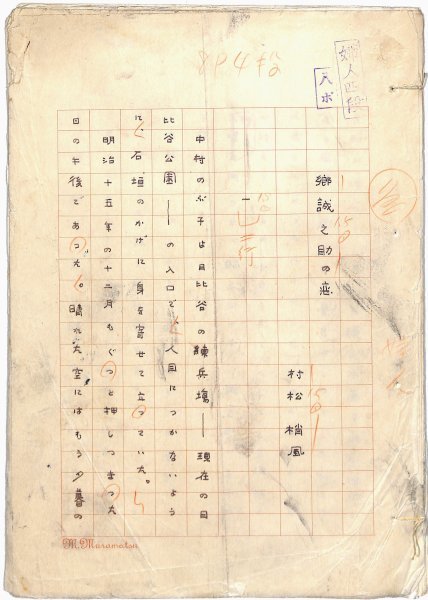 8P4段
婦人四段
八ポ
郷誠之助の恋
村松梢風
一
中村のぶ子は日比谷の練兵場——現在の日
比谷公園——の入口で、人目につかないよう
に、石垣のかげに身を寄せて立つてゐた。
明治十五年の十二月もぐつと押しつまつた
日の午後であつた。晴れた空にはもう夕暮の
M. Muramatsu